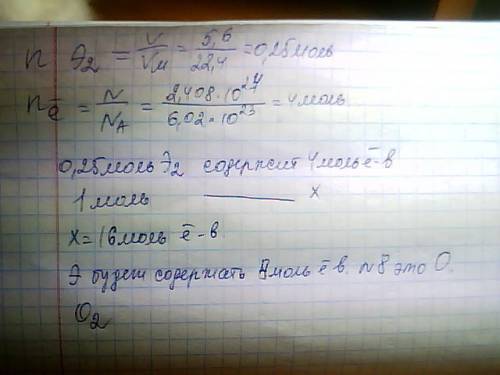 n Э₂ = V/Vм = 5,6/22,4 = 0,25моль
nē = N/NA = 2,408·10²⁴/6,02·10²³ = 4моль
0,25моль Э₂ содержит 4моль ē-в
1моль ——— x
X=16моль ē-в
Э будет содержать 8моль ē в. N8 это O.
O₂